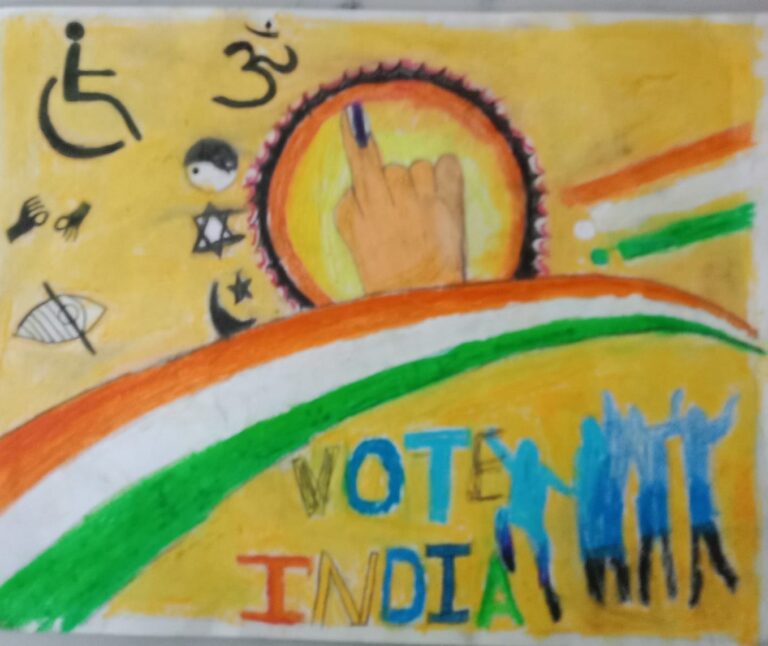 ॐ
VOTE
INDIA